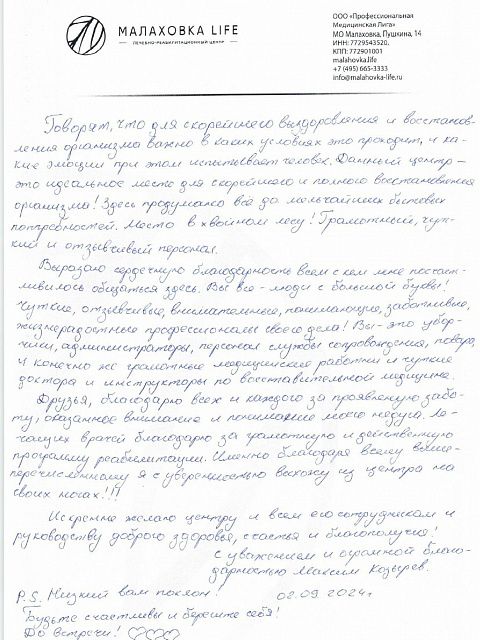 МАЛАХОВКА LIFE
ЛЕЧЕБНО-РЕАБИЛИТАЦИОННЫЙ ЦЕНТР
ООО «Профессиональная
Медицинская Лига»
МО Малаховка, Пушкина, 14
ИНН: 7729543520,
КПП: 772901001
malahovka.life
+7 (495) 665-3333
info@malahovka-life.ru
Говорят, что для скорейшего выздоровления и восстанов-
ления организма важно в каких условиях это проходит, и ка-
кие эмоции при этом испытывает человек. Данный центр —
это идеальное место для скорейшего и полного восстановления
организма! Здесь продумано всё до мельчайших бытовых
потребностей. Место в хвойном лесу! Грамотный, чут-
кий и отзывчивый персонал.
Выражаю сердечную благодарность всем с кем мне посчаст-
ливилось общаться здесь. Вы все - люди с большой буквы!
Чуткие, отзывчивые, внимательные, понимающие, заботливые,
жизнерадостные профессионалы своего дела! Вы - это убор-
щики, администраторы, персонал службы сопровождения, повара,
и конечно же грамотные медицинские работники и чуткие
доктора и инструкторы по восставительной медицине.
Друзья, благодарю всех и каждого за проявленную забо-
ту, оказанное внимание и понимание моего недуга. Ле-
чащих врачей благодарю за грамотную и действенную
программу реабилитации. Именно благодаря всему выше-
перечисленному я с уверенностью выхожу из центра на
своих ногах!!!
Искренне желаю центру и всем его сотрудникам и
руководству доброго здоровья, счастья и благополучия!
С уважением и огромной благо-
дарностью Максим Козырев.
P.S. Низкий вам поклон! 02.09.2024г.
Будьте счастливы и берегите себя!
До встречи!